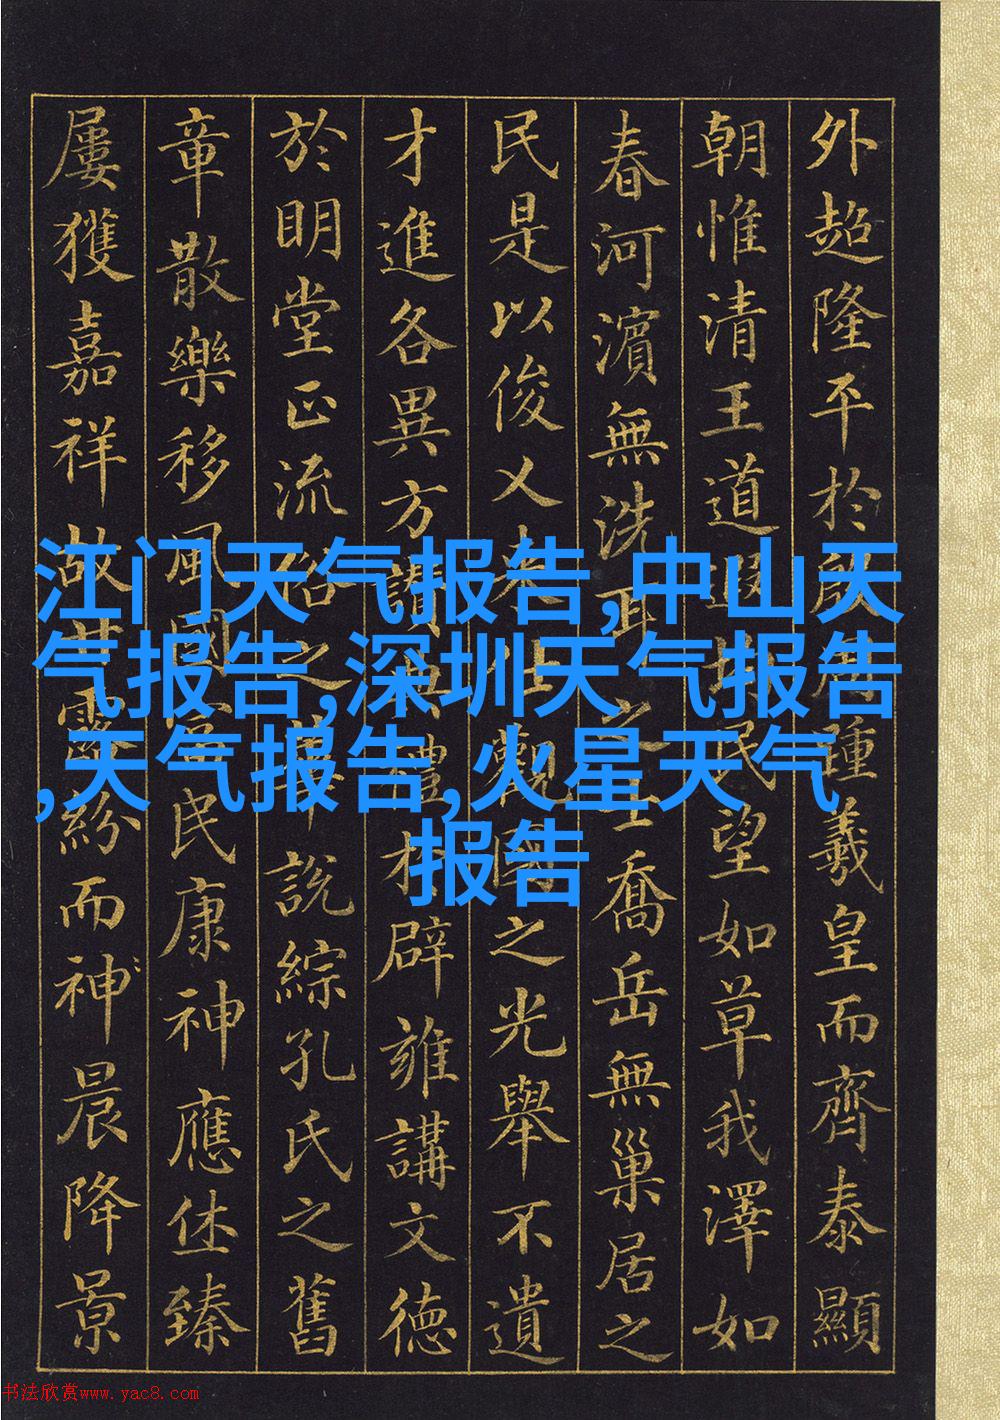 外超隆平於殷周踵羲皇而齊泰顯
朝惟清王道遐均民望如草我澤如
春河濱無洗耳之士喬岳無巢居之
民是以俊乂來仕觀國之光舉不遺
才進各異方讚典禮於辟雍講文德
於明堂正流俗之華說綜孔氏之舊
章散樂移風國富民康神應休臻
屢獲嘉祥故甘露紛而神晨降景
江门天气报告,中山天
气报告,深圳天气报告
,天气报告,火星天气
报告
书法欣赏www.yac8.com